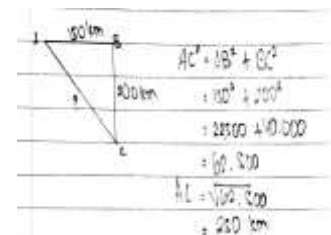 150 km
A B
200 km
?
C
AC² = AB² + BC²
= 150² + 200²
= 22500 + 40.000
= 62.500
AC = √62.500
= 250 km